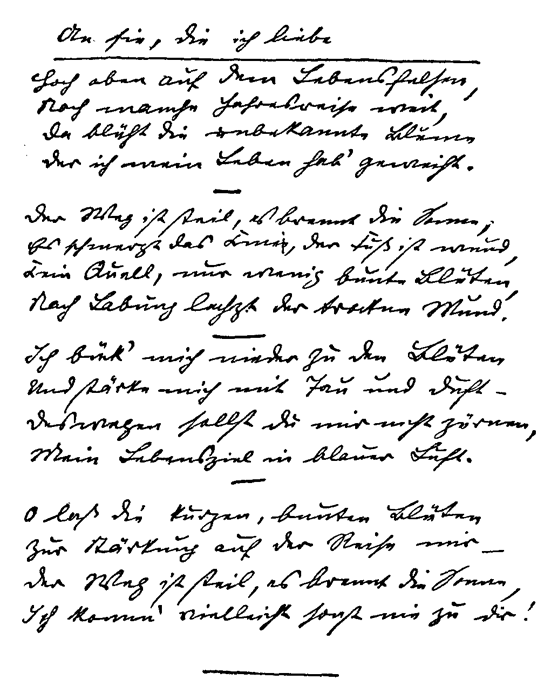 An sie, die ich liebe
Hoch oben auf dem Lebensfelsen,
Noch manche Jahresreise weit,
Da blüht die unbekannte Blume
Der ich mein Leben hab' geweiht.
Der Weg ist steil, es brennt die Sonne,
Es schmerzt das Knie, der Fuß ist wund,
Kein Quell, nur wenig bunte Blüten,
Nach Labung lechzt der trockne Mund.
Ich bück' mich nieder zu den Blüten
Und stärke mich mit Tau und Duft –
Deswegen sollst du mir nicht zürnen,
Mein Lebensziel in blauer Luft.
O laß die kurzen, bunten Blüten
Zur Stärkung auf der Reise mir –
Der Weg ist steil, es brennt die Sonne,
Ich komm' vielleicht sonst nie zu dir!